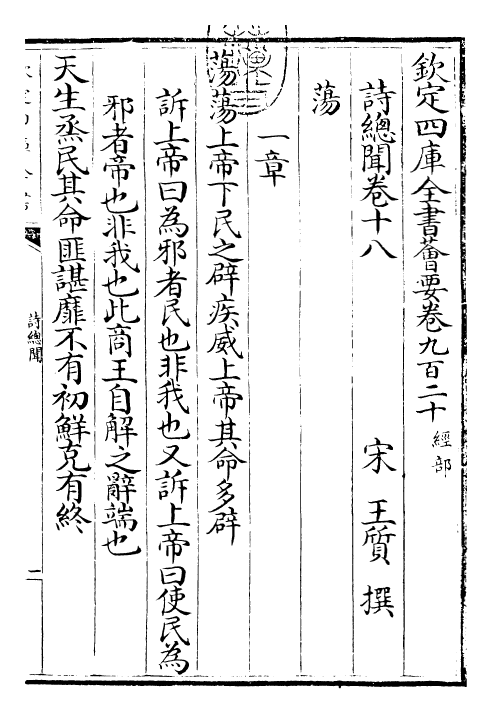 欽定四庫全書薈要卷九百二十 經部
詩總聞卷十八 宋 王質 撰
蕩
一章
蕩蕩上帝下民之辟疾威上帝其命多辟
訴上帝曰為邪者民也非我也又訴上帝曰使民為
邪者帝也非我也此商王自解之辭端也
天生烝民其命匪諶靡不有初鮮克有終
詩總聞